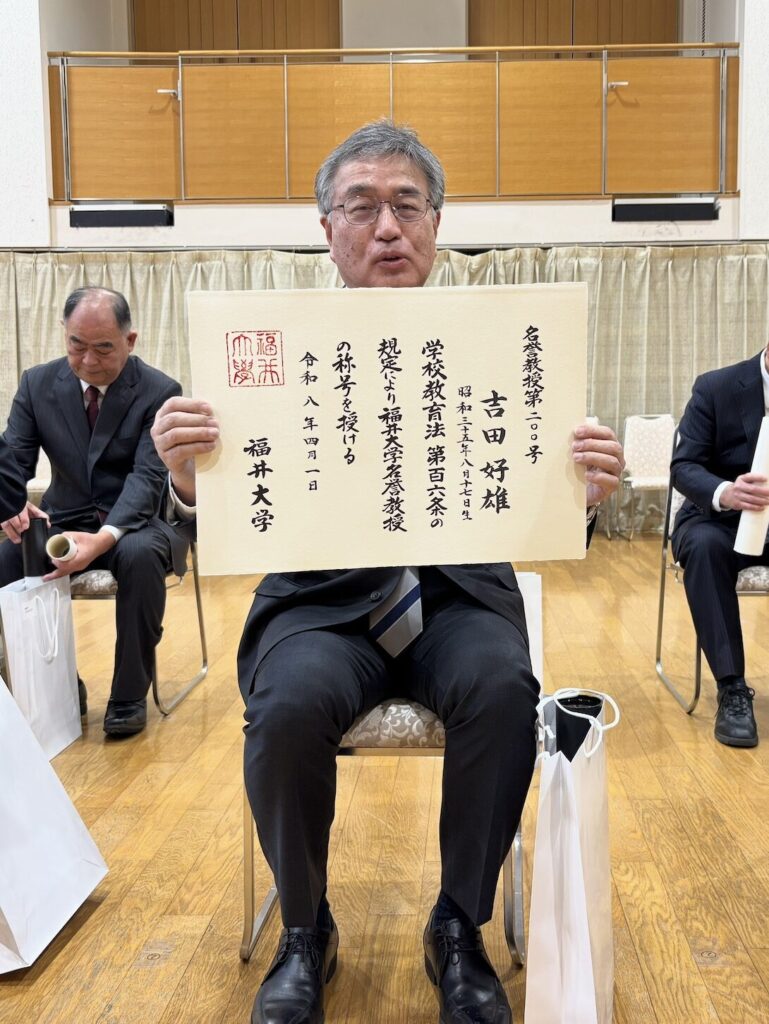 名誉教授第二〇〇号
吉田好雄
昭和三十五年八月十七日生
学校教育法第百六条の
規定により福井大学名誉教授
の称号を授ける
令和八年四月一日
福井大学
福井大學